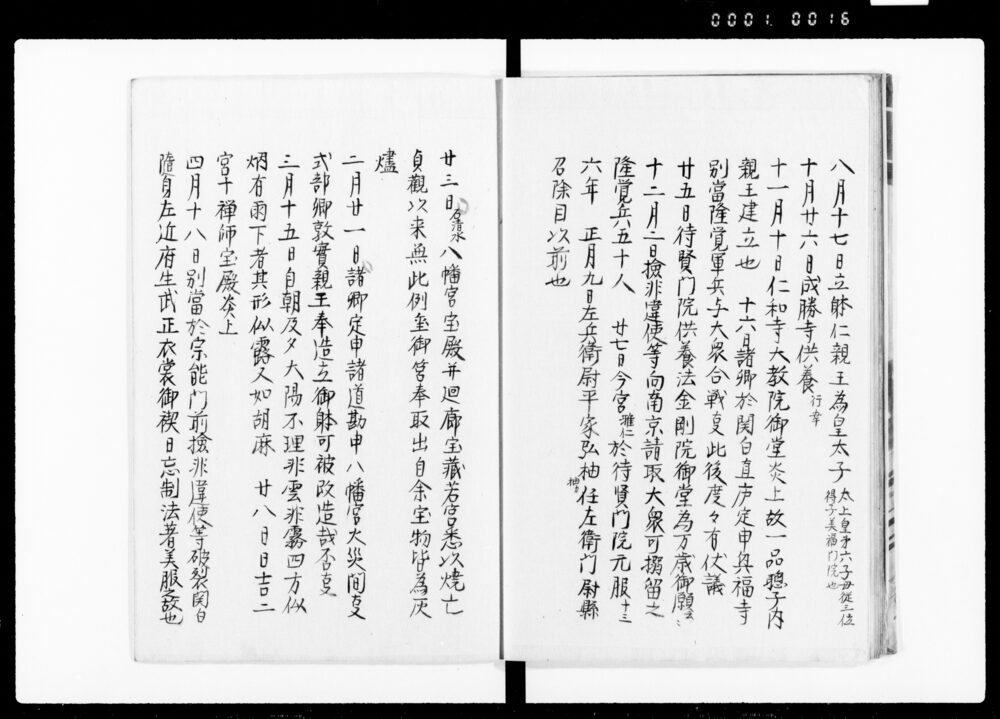 0001 0016
八月十七日立躰仁親王為皇太子 太上皇才六子母從三位
得子美福門院也
十月廿六日成勝寺供養 行幸
十一月十日仁和寺大教院御堂炎上故一品聰子内
親王建立也 十六日諸卿於関白直庐定申興福寺
別當隆覚軍兵与大衆合戦㕝此後度々有仗議
廿五日待賢門院供養法金剛院御堂為万歳御願云〻
十二月二日撿非違使等向南京請取大衆可搦留之
隆覚兵五十人 廿七日今宮 雅仁 於待賢門院元服 十三
六年 正月九日左兵衛尉平家弘柚任左衛門尉縣
召除目以前也
廿三日 石清水 八幡宮宝殿并廻廊宝蔵若宮悉以焼亡
貞観以来無此例至御筥奉取出自余宝物皆為灰
燼
二月廿一日諸卿定申諸道勘申八幡宮火災間㕝
式部卿敦實親王奉造立御躰可被改造哉否㕝
三月十五日自朝及夕大陽不理非雲非霧四方似
烟有雨下者其形似露又如胡麻 廿八日日吉二
宮十禅師宝殿炎上
四月十八日別當於宗能門前撿非違使等破裂関白
隨身左近府生武正衣裳御禊日忘制法著美服之故也